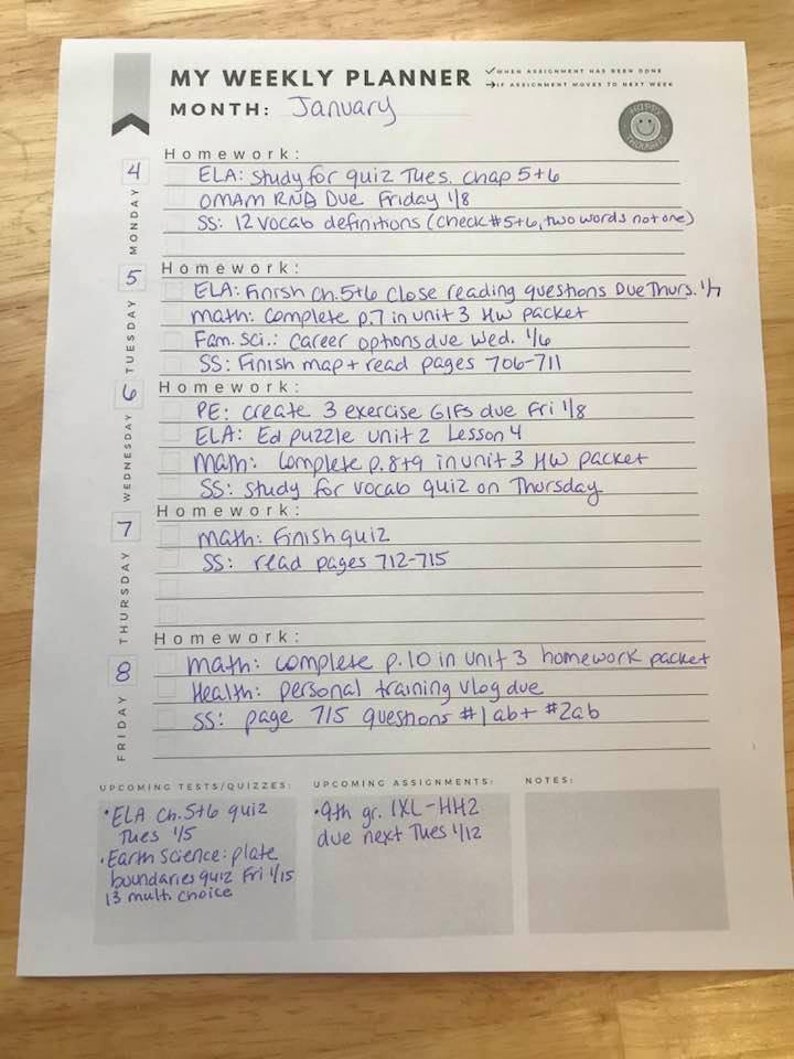 MY WEEKLY PLANNER
✓WHEN ASSIGNMENT HAS BEEN DONE
→IF ASSIGNMENT MOVES TO NEXT WEEK
MONTH: January
HAPPY THOUGHTS
4
MONDAY
Homework:
ELA: Study for quiz Tues. Chap 5+6
OMAM RND Due Friday 1/8
SS: 12 vocab definitions (check #5+6, two words not one)
5
TUESDAY
Homework:
ELA: Finish Ch. 5+6 Close reading questions Due Thurs. 1/7
math: Complete p.7 in unit 3 HW packet
Fam. Sci.: Career options due Wed. 1/6
SS: Finish map + read pages 706-711
6
WEDNESDAY
Homework:
PE: create 3 exercise GIFs due Fri 1/8
ELA: Ed puzzle unit 2 Lesson 4
math: Complete p. 8+9 in unit 3 HW packet
SS: Study for vocab quiz on Thursday
7
THURSDAY
Homework:
math: Finish quiz
SS: read pages 712-715
8
FRIDAY
Homework:
math: complete p.10 in unit 3 homework packet
Health: personal training vlog due
SS: page 715 questions #1ab + #2ab
UPCOMING TESTS/QUIZZES:
•ELA Ch. 5+6 quiz
Tues 1/5
•Earth Science: plate
boundaries quiz Fri 1/15
13 mult. choice
UPCOMING ASSIGNMENTS:
•9th gr. IXL-HH2
due next Tues 1/12
NOTES: